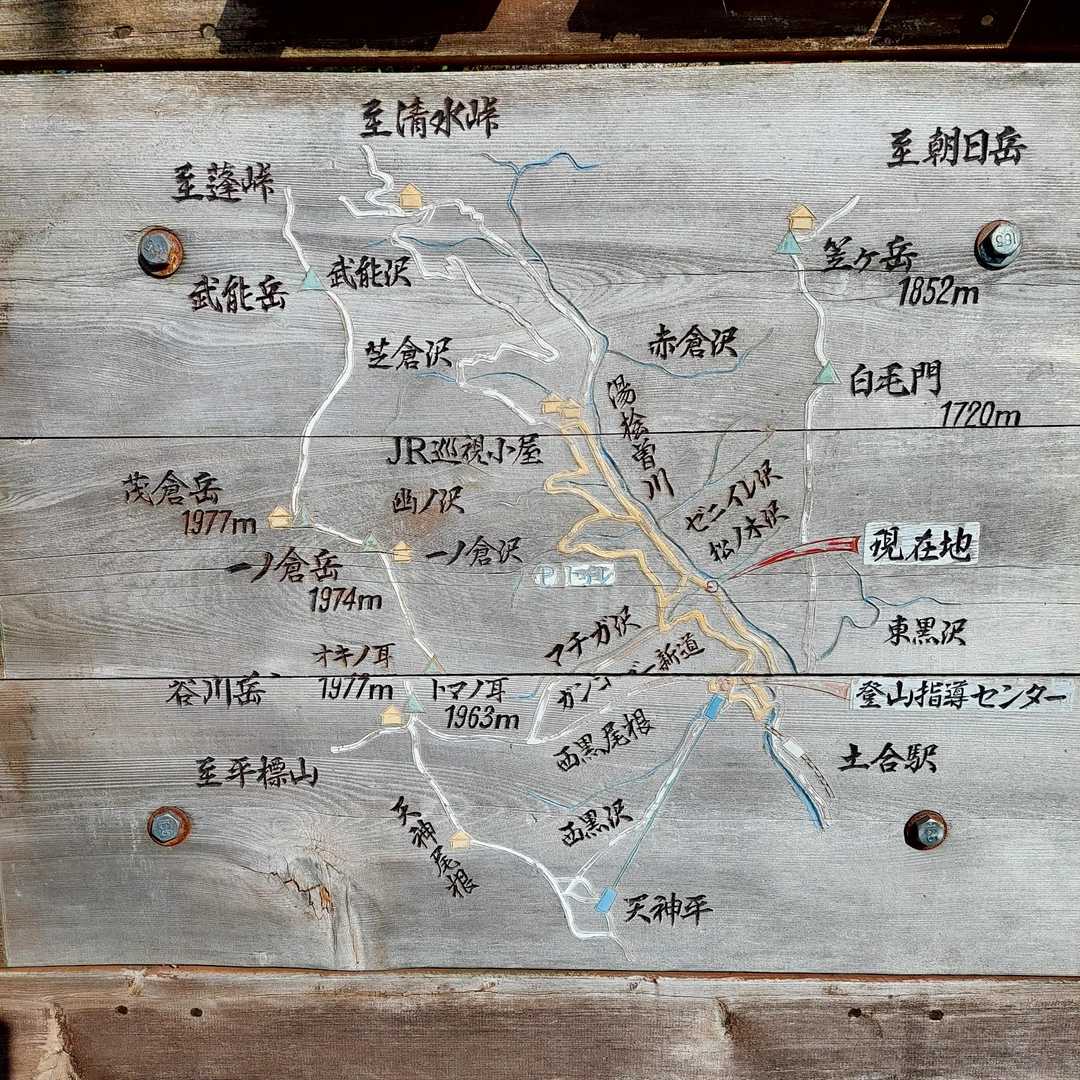 至清水峠
至朝日岳
至蓬峠
笠ヶ岳
1852m
武能岳
武能沢
芝倉沢
赤倉沢
白毛門
1720m
湯桧曽川
JR巡視小屋
茂倉岳
1977m
幽ノ沢
ゼニイレ沢
松ノ木沢
現在地
一ノ倉岳
1974m
一ノ倉沢
P トイレ
東黒沢
マチガ沢
オキノ耳
1977m
谷川岳
トマノ耳
1963m
ガンゴー新道
西黒尾根
登山指導センター
土合駅
至平標山
天神尾根
西黒沢
天神平